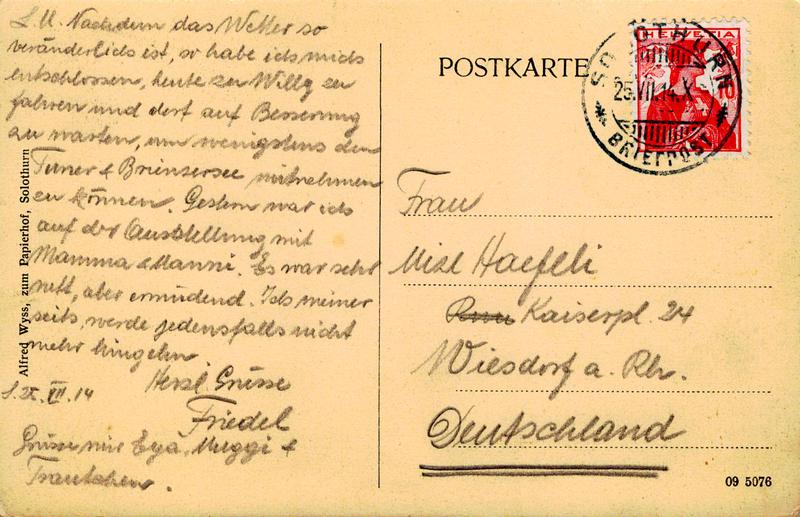 L.M. Nachdem das Wetter so
veränderlich ist, so habe ich mich
entschlossen, heute zu Willy zu
fahren und dort auf Besserung
zu warten, um wenigstens den
Tuner & Brienzersee mitnehmen
zu können. Gestern war ich
auf der Ausstellung mit
Mamma & Manni. Es war sehr
nett, aber ermüdend. Ich meiner
seits, werde jedensfalls nicht
mehr hingehn.
Herzl. Grüsse
Friedel
S. 25. VII. 14
Grüsse mir Eya, Muggi &
Trautchen.
Alfred Wyss, zum Papierhof, Solothurn
POSTKARTE
HELVETIA
10
SOLOTHURN
25.VII.14.X
BRIEFPOST
Frau
Mizl Haefeli
Kaiserpl. 24
Wiesdorf a. Rh.
Deutschland
09 5076